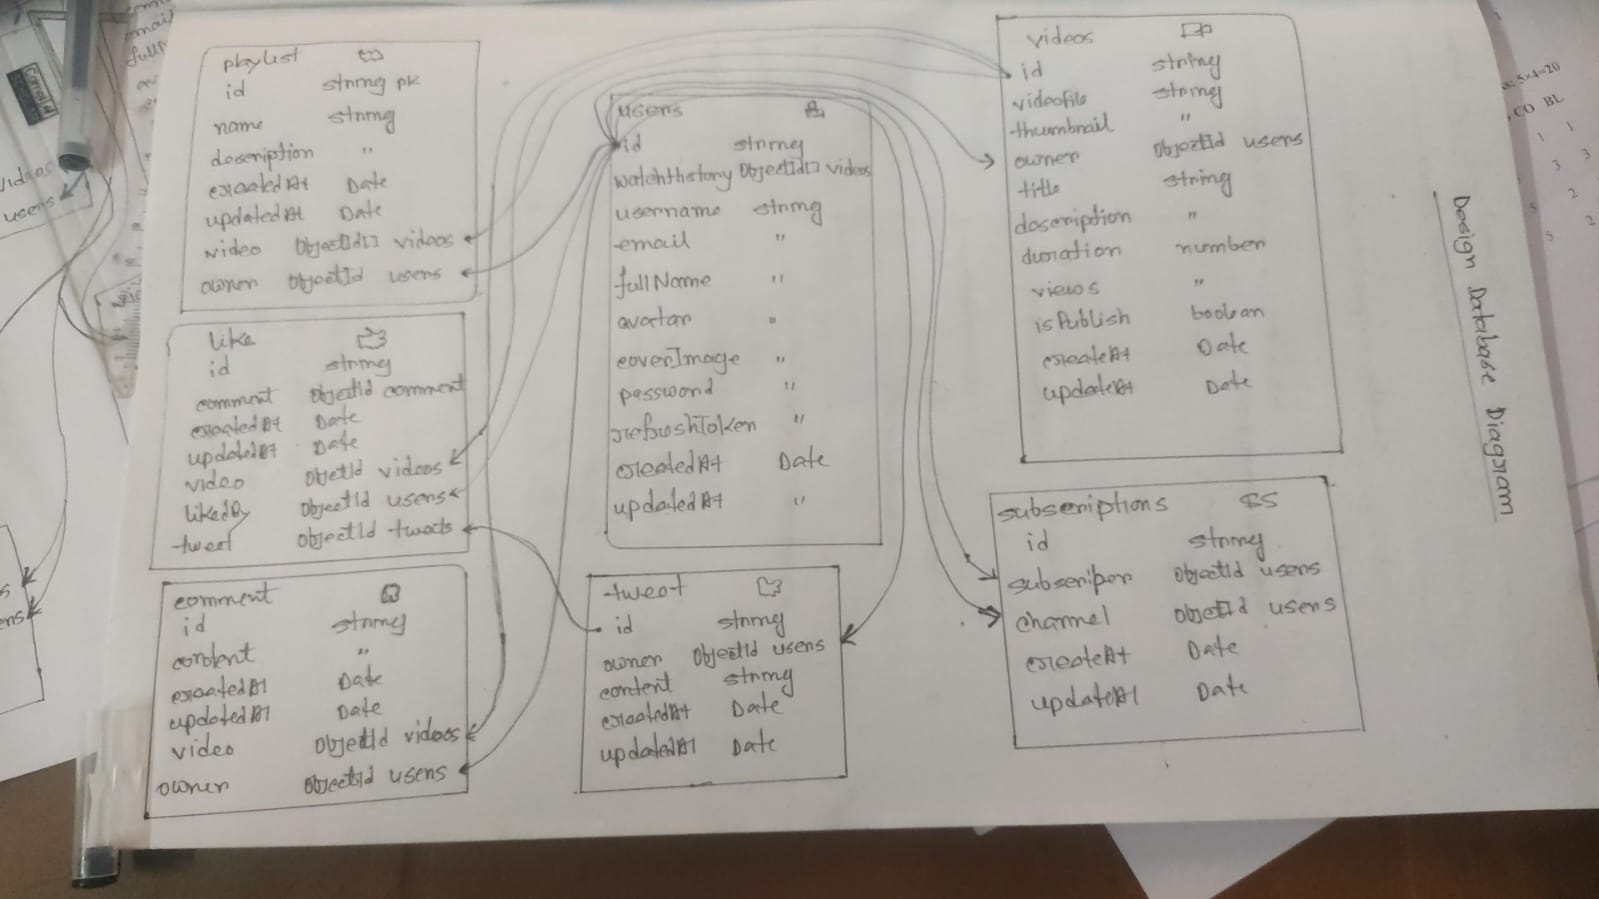 playlist
id string pk
name string
description "
createdAt Date
updatedAt Date
video ObjectId[] videos
owner ObjectId users
like
id string
comment ObjectId comment
createdAt Date
updatedAt Date
video ObjetId videos
likedBy ObjectId users
tweet objectId tweets
comment
id string
content "
createdAt Date
updatedAt Date
video ObjectId videos
owner ObjectId users
users
id string
watchhstory ObjectId[] videos
username string
email "
fullName "
avatar "
coverImage "
password "
refreshToken "
createdAt Date
updatedAt "
tweet
id string
owner ObjectId users
content string
createdAt Date
updatedAt Date
videos
id string
videofile string
thumbnail "
owner ObjectId users
title string
description "
duration number
views "
isPublish boolean
createAt Date
updateAt Date
subscriptions $S
id string
subscriber ObjectId users
channel ObjectId users
createAt Date
updateAt Date
Design Database Diagram
videos
users
5x4=20
CO BL
1 1
3 3
2